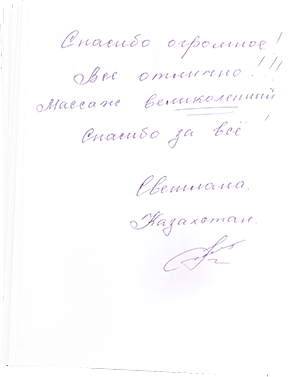 Спасибо огромное!
Все отлично!!!
Массаж великолепний
Спасибо за всё!
Светлана.
Казахстан.